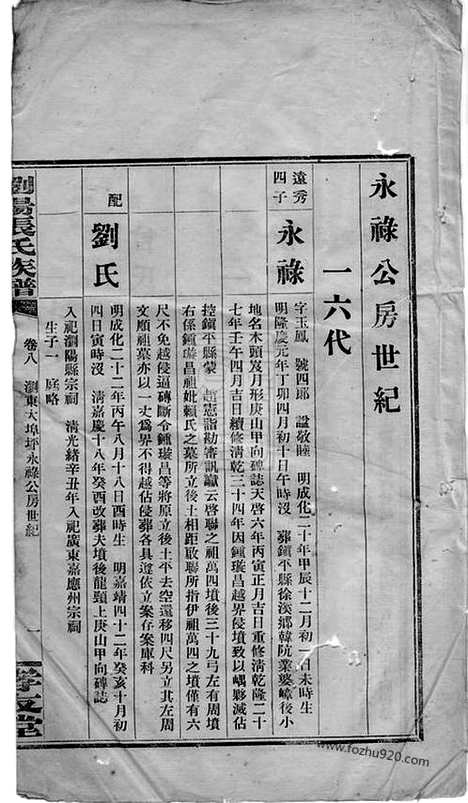 永祿公房世紀
一六代
遠秀四子
永祿
字玉鳳 號四郎 諡敬睦 明成化二十年甲辰十二月初一日未時生
明隆慶元年丁卯四月初十日午時沒 葬鎮平縣徐溪鄉韓阬業婆嶂後小
地名木頭岌月形庚山甲向碑誌天啓六年丙寅正月吉日重修清乾隆二十
七年壬午四月吉日續修清乾三十四年因鍾璇昌越界侵墳致以嶋夥減佔
控鎮平縣蒙 趙憲詣勘審訊讞云啓聯之祖萬四墳後三十九弓左有周墳
右係鍾璇昌祖妣賴氏之墓所立後土相距啟聯所指伊祖萬四之墳僅有六
尺不免越侵逼磚斷令鍾璇昌等將原立後土平去空還移四尺另立其左周
文順祖墓亦以一丈爲界不得越佔侵葬各具遵依立案存案庫科
配
劉氏
明成化二十二年丙午八月十八日酉時生 明嘉靖四十二年癸亥十月初
四日寅時沒 清嘉慶十八年癸酉改葬夫墳後龍頸上庚山甲向碑誌
入祀瀏陽縣宗祠 清光緒辛丑年入祀廣東嘉應州宗祠
生子一 庭略
瀏陽張氏族譜
卷八 瀏東大埠坪永祿公房世紀
一
孝友堂
www.fozhu920.com